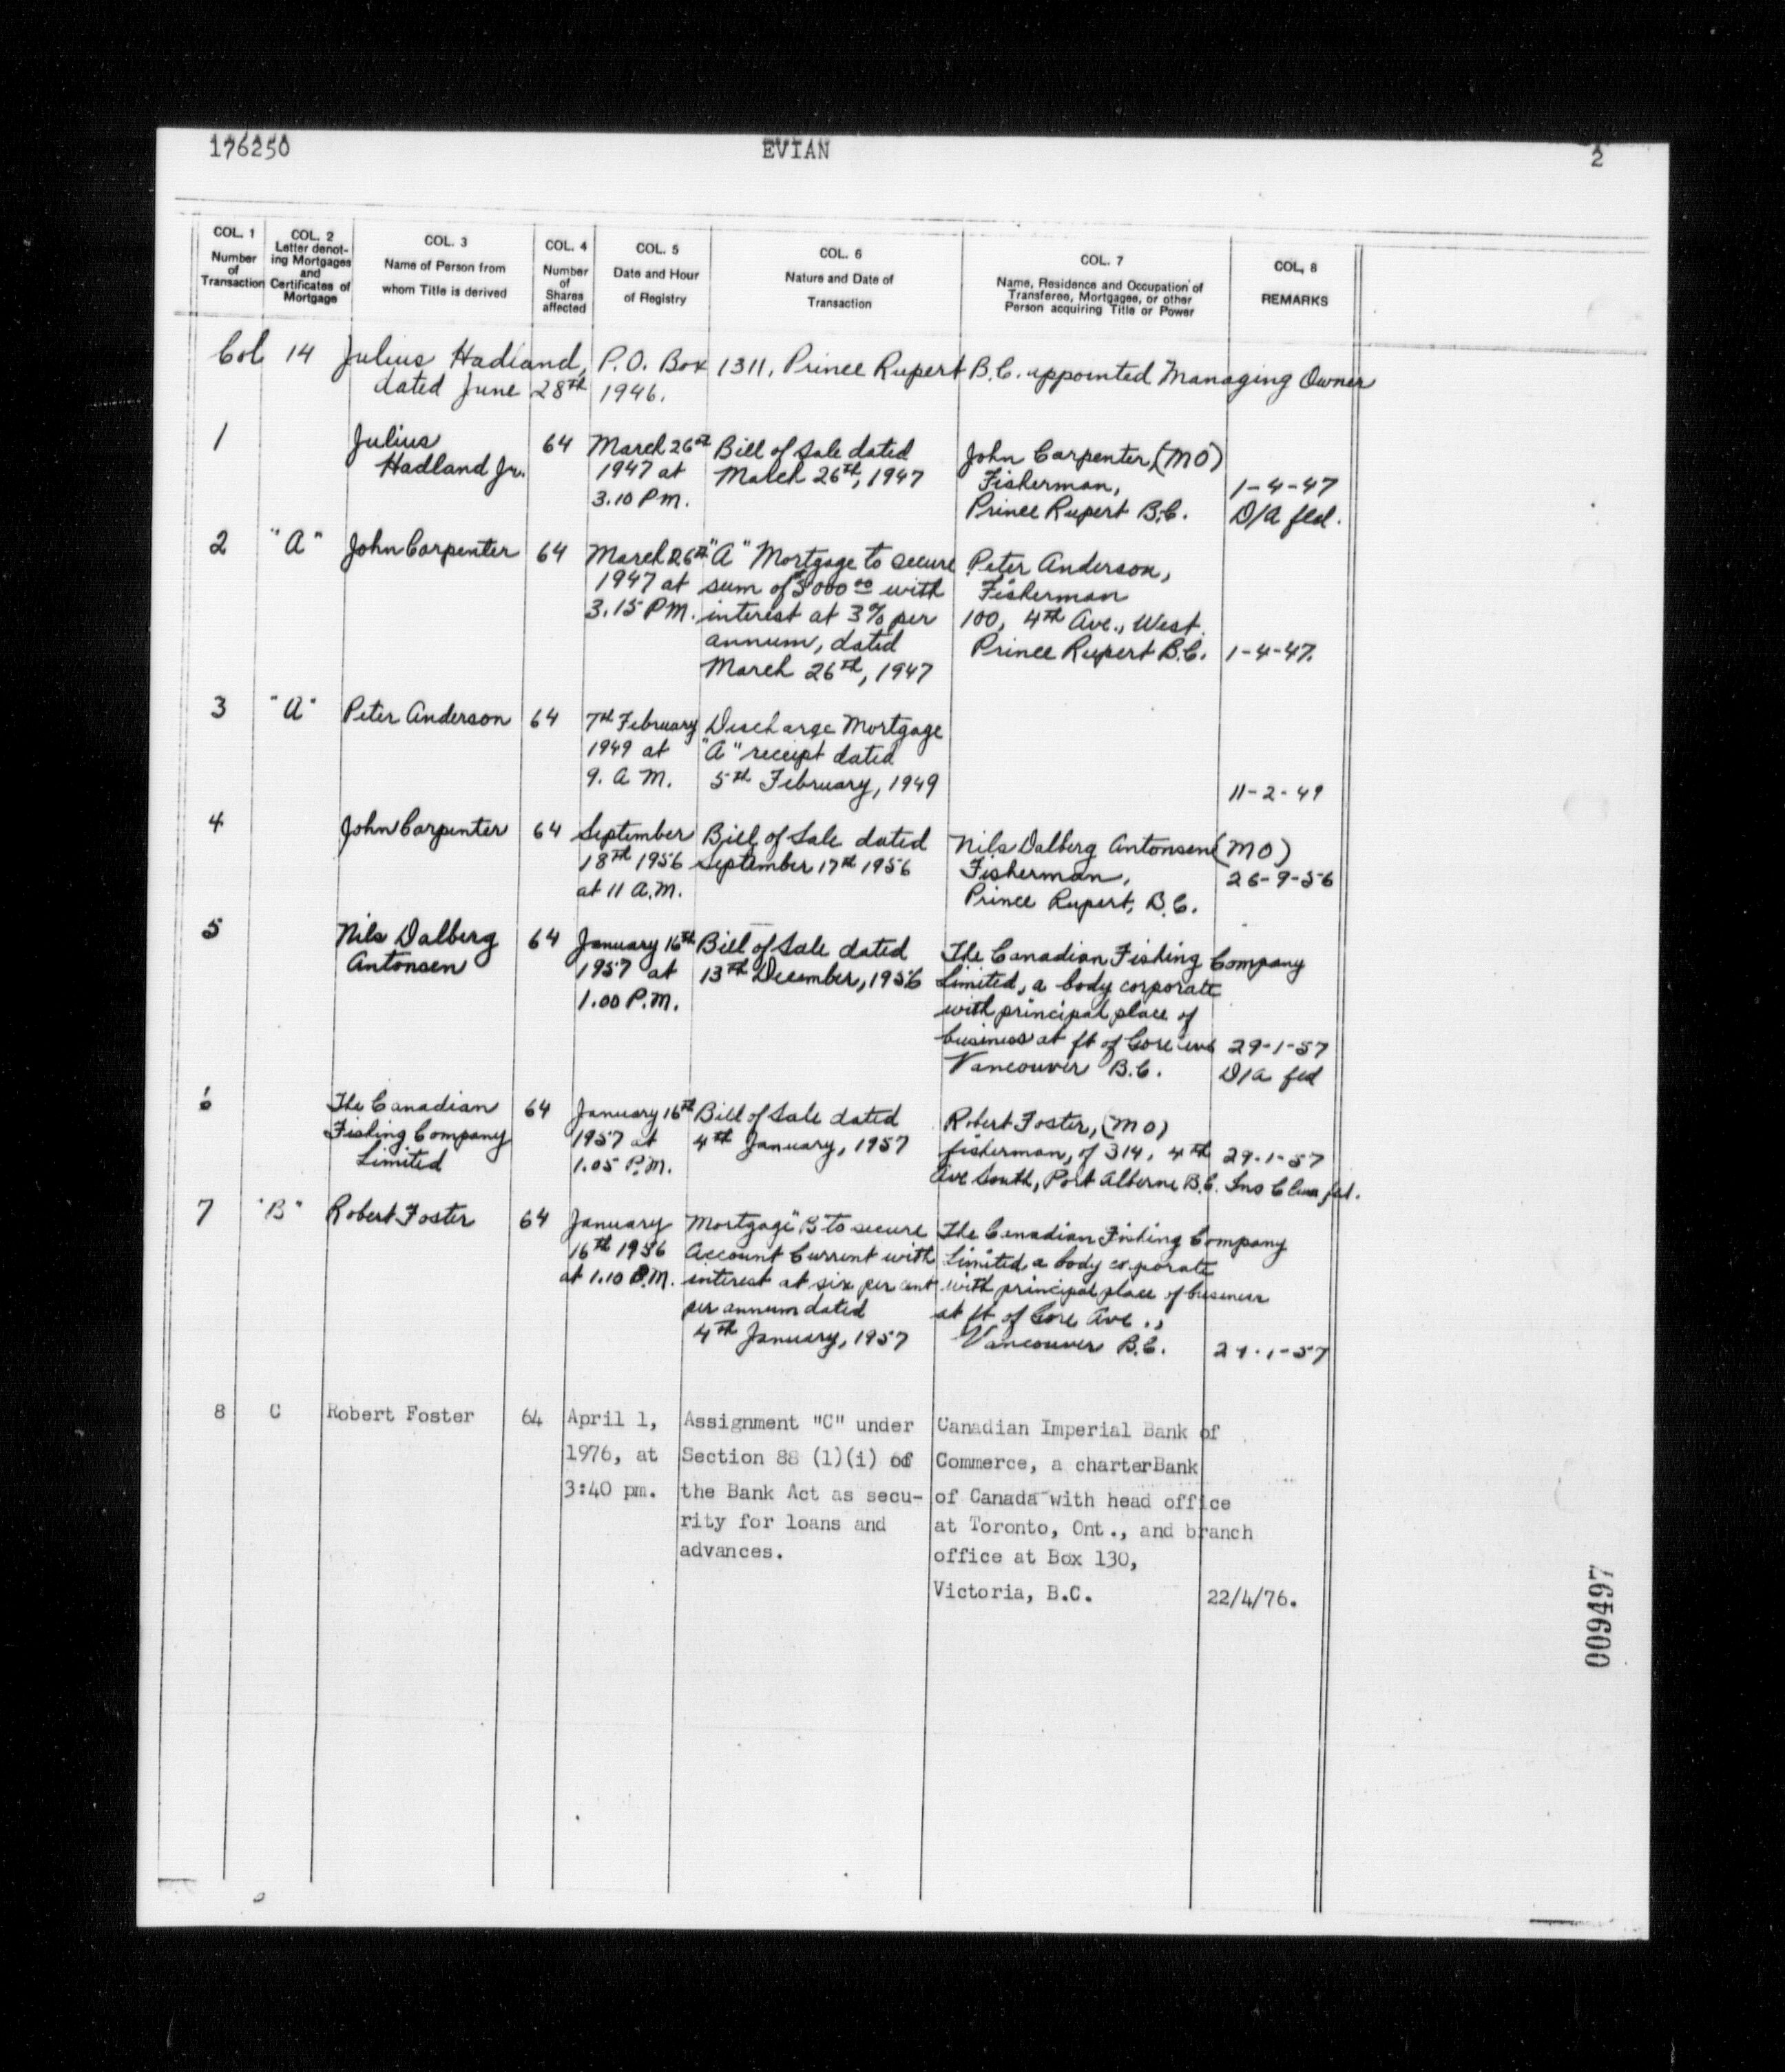 176250 EVIAN 2
COL. 1 Number of Transaction
COL. 2 Letter denoting Mortgages and Certificates of Mortgage
COL. 3 Name of Person from whom Title is derived
COL. 4 Number of Shares affected
COL. 5 Date and Hour of Registry
COL. 6 Nature and Date of Transaction
COL. 7 Name, Residence and Occupation of Transferee, Mortgagee, or other Person acquiring Title or Power
COL. 8 REMARKS
Col 14 Julius Hadland, P.O. Box 1311, Prince Rupert B.C. appointed Managing Owner
dated June 28th 1946.
1 Julius 64 March 26th Bill of Sale dated John Carpenter, (MO)
Hadland Jr. 1947 at March 26th, 1947 Fisherman, 1-4-47
3.10 PM. Prince Rupert B.C. D/A fld.
2 "A" John Carpenter 64 March 26th "A" Mortgage to secure Peter Anderson,
1947 at sum of $3000.00 with Fisherman
3.15 PM. interest at 3% per 100, 4th Ave., West.
annum, dated Prince Rupert B.C. 1-4-47.
March 26th, 1947
3 "A" Peter Anderson 64 7th February Discharge Mortgage
1949 at "A" receipt dated
9. A M. 5th February, 1949 11-2-49
4 John Carpenter 64 September Bill of Sale dated Nils Dalberg Antonsen (MO)
18th 1956 September 17th 1956 Fisherman, 26-9-56
at 11 A.M. Prince Rupert, B.C.
5 Nils Dalberg 64 January 16th Bill of Sale dated The Canadian Fishing Company
Antonsen 1957 at 13th December, 1956 Limited, a body corporate
1.00 P.M. with principal place of
business at ft of Gore ave 29-1-57
Vancouver B.C. D/A fld
6 The Canadian 64 January 16th Bill of Sale dated Robert Foster, (MO)
Fishing Company 1957 at 4th January, 1957 fisherman, of 314, 4th 29-1-57
Limited 1.05 P.M. Ave South, Port Alberni B.C.
7 "B" Robert Foster 64 January Mortgage "B" to secure The Canadian Fishing Company
16th 1956 Account Current with Limited a body corporate
at 1.10 P.M. interest at six per cent with principal place of business
per annum dated at ft of Gore Ave.,
4th January, 1957 Vancouver B.C. 29-1-57
8 C Robert Foster 64 April 1, Assignment "C" under Canadian Imperial Bank of
1976, at Section 88 (1)(i) of Commerce, a charterBank
3:40 pm. the Bank Act as secu- of Canada with head office
rity for loans and at Toronto, Ont., and branch
advances. office at Box 130,
Victoria, B.C. 22/4/76.
009467